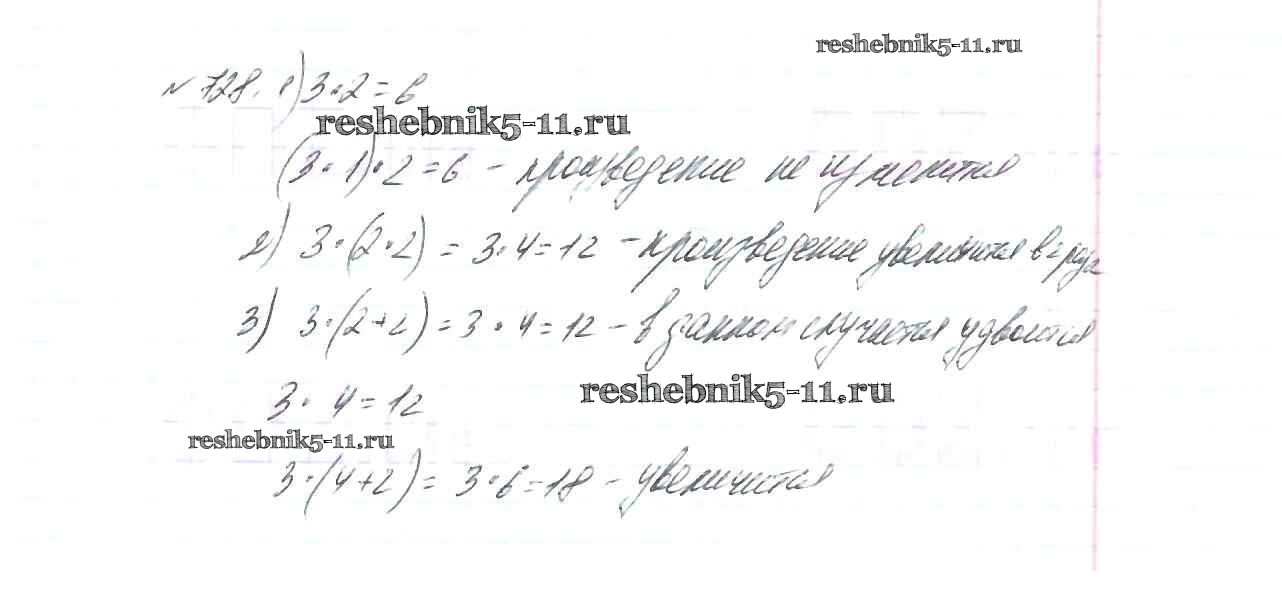 reshebnik5-11.ru
№ 728. 1) 3·2=6
reshebnik5-11.ru
(3·1)·2=6 - произведение не изменится
2) 3·(2·2) = 3·4=12 - произведение увеличится в 2 раза
3) 3·(2+2) = 3·4=12 - в данном случается удвоится
3·4=12
reshebnik5-11.ru
reshebnik5-11.ru
3·(4+2) = 3·6=18 - увеличится